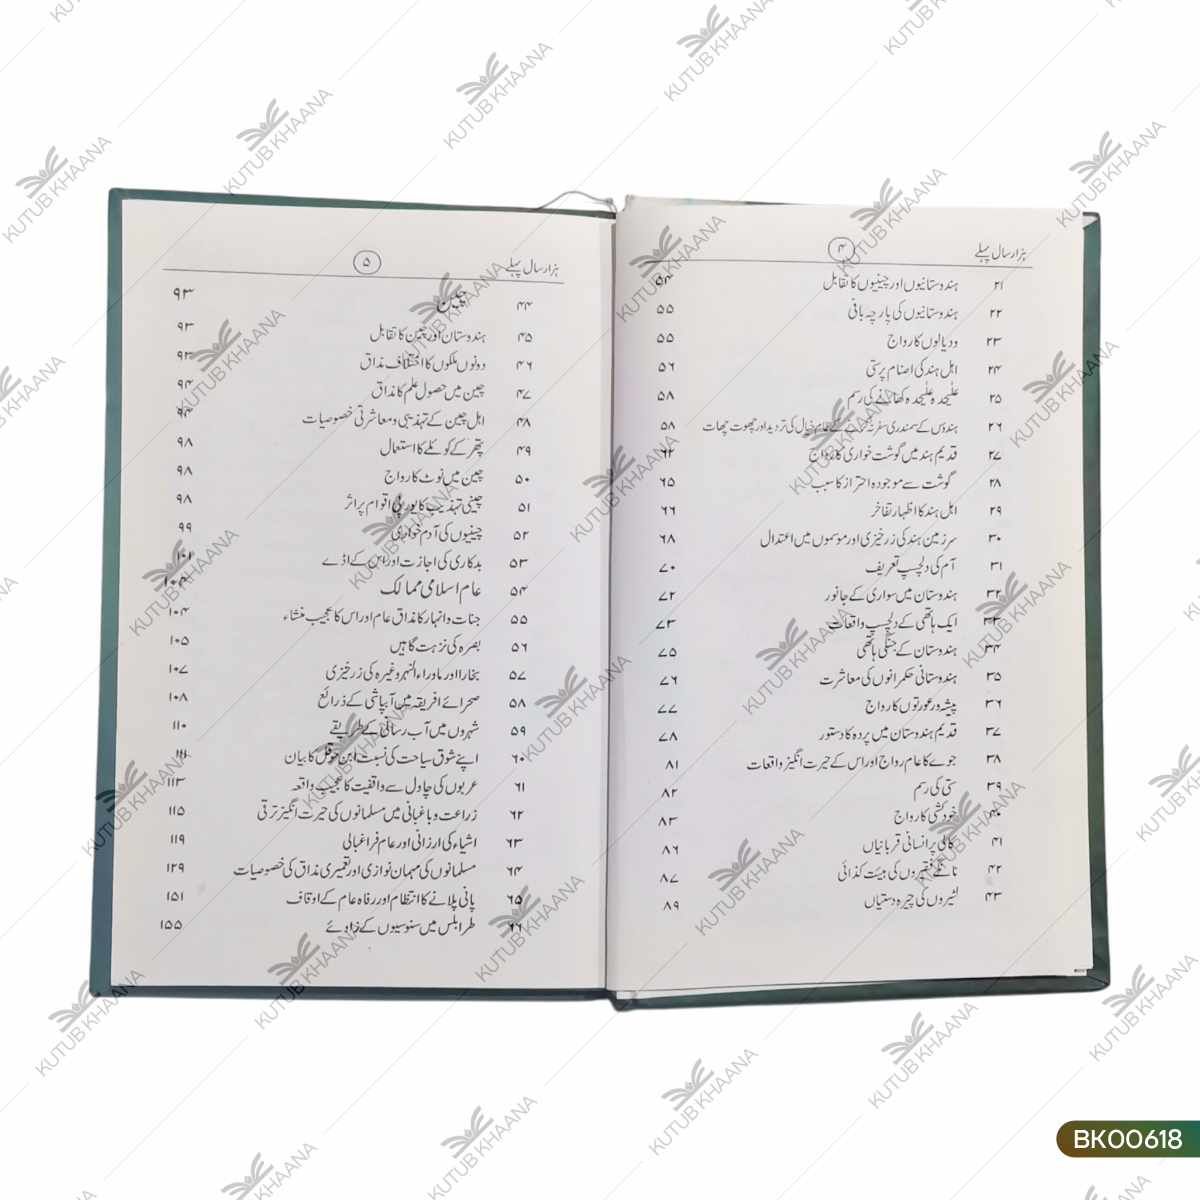 ہزار سال پہلے ۴
۲۱ ہندوستانیوں اور چینیوں کا تقابل ۵۴
۲۲ ہندوستانیوں کی پارچہ بافی ۵۵
۲۳ ودیالوں کا رواج ۵۵
۲۴ اہل ہند کی اصنام پرستی ۵۶
۲۵ علٰیحدہ علٰیحدہ کھانے کی رسم ۵۸
۲۶ ہندؤں کے سمندری سفر نہ کرنے کے عام خیال کی تردید اور چھوت چھات ۵۸
۲۷ قدیم ہند میں گوشت خواری کا رواج ۶۲
۲۸ گوشت سے موجودہ احتراز کا سبب ۶۵
۲۹ اہل ہند کا اظہار تفاخر ۶۶
۳۰ سرزمین ہند کی زرخیزی اور موسموں میں اعتدال ۶۸
۳۱ آم کی دلچسپ تعریف ۷۰
۳۲ ہندوستان میں سواری کے جانور ۷۲
۳۳ ایک ہاتھی کے دلچسپ واقعات ۷۳
۳۴ ہندوستان کے جنگی ہاتھی ۷۵
۳۵ ہندوستانی حکمرانوں کی معاشرت ۷۶
۳۶ پیشہ ور عورتوں کا رواج ۷۷
۳۷ قدیم ہندوستان میں پردہ کا دستور ۷۸
۳۸ جوے کا عام رواج اور اس کے حیرت انگیز واقعات ۸۱
۳۹ ستی کی رسم ۸۲
۴۰ خودکشی کا رواج ۸۳
۴۱ کالی پر انسانی قربانیاں ۸۶
۴۲ ناگے فقیروں کی ہیئت کذائی ۸۷
۴۳ لٹیروں کی چیرہ دستیاں ۸۹
ہزار سال پہلے ۵
۴۴ چین ۹۳
۴۵ ہندوستان اور چین کا تقابل ۹۳
۴۶ دونوں ملکوں کا اختلاف مذاق ۹۳
۴۷ چین میں حصول علم کا مذاق ۹۴
۴۸ اہل چین کے تہذیبی و معاشرتی خصوصیات ۹۴
۴۹ پتھر کے کوئلے کا استعمال ۹۸
۵۰ چین میں نوٹ کا رواج ۹۸
۵۱ چینی تہذیب کا یورپی اقوام پر اثر ۹۸
۵۲ چینیوں کی آدم خواری ۹۹
۵۳ بدکاری کی اجازت اور اس کے اڈے ۱۰۱
۵۴ عام اسلامی ممالک ۱۰۴
۵۵ جنات و انہار کا مذاق عام اور اس کا عجیب منشاء ۱۰۴
۵۶ بصرہ کی نزہت گاہیں ۱۰۵
۵۷ بخارا اور ماوراء النہر وغیرہ کی زرخیزی ۱۰۷
۵۸ صحرائے افریقہ میں آبپاشی کے ذرائع ۱۰۸
۵۹ شہروں میں آب رسانی کے طریقے ۱۱۰
۶۰ اپنے شوق سیاحت کی نسبت ابن حوقل کا بیان ۱۱۱
۶۱ عربوں کی چاول سے واقفیت کا عجیب واقعہ ۱۱۳
۶۲ زراعت و باغبانی میں مسلمانوں کی حیرت انگیز ترقی ۱۱۵
۶۳ اشیاء کی ارزانی اور عام فراغبالی ۱۱۹
۶۴ مسلمانوں کی مہمان نوازی اور تعمیری مذاق کی خصوصیات ۱۲۹
۶۵ پانی پلانے کا انتظام اور رفاہ عام کے اوقاف ۱۵۱
۶۶ طرابلس میں سنوسیوں کے زاوئے ۱۵۵
KUTUB KHAANA
BK00618